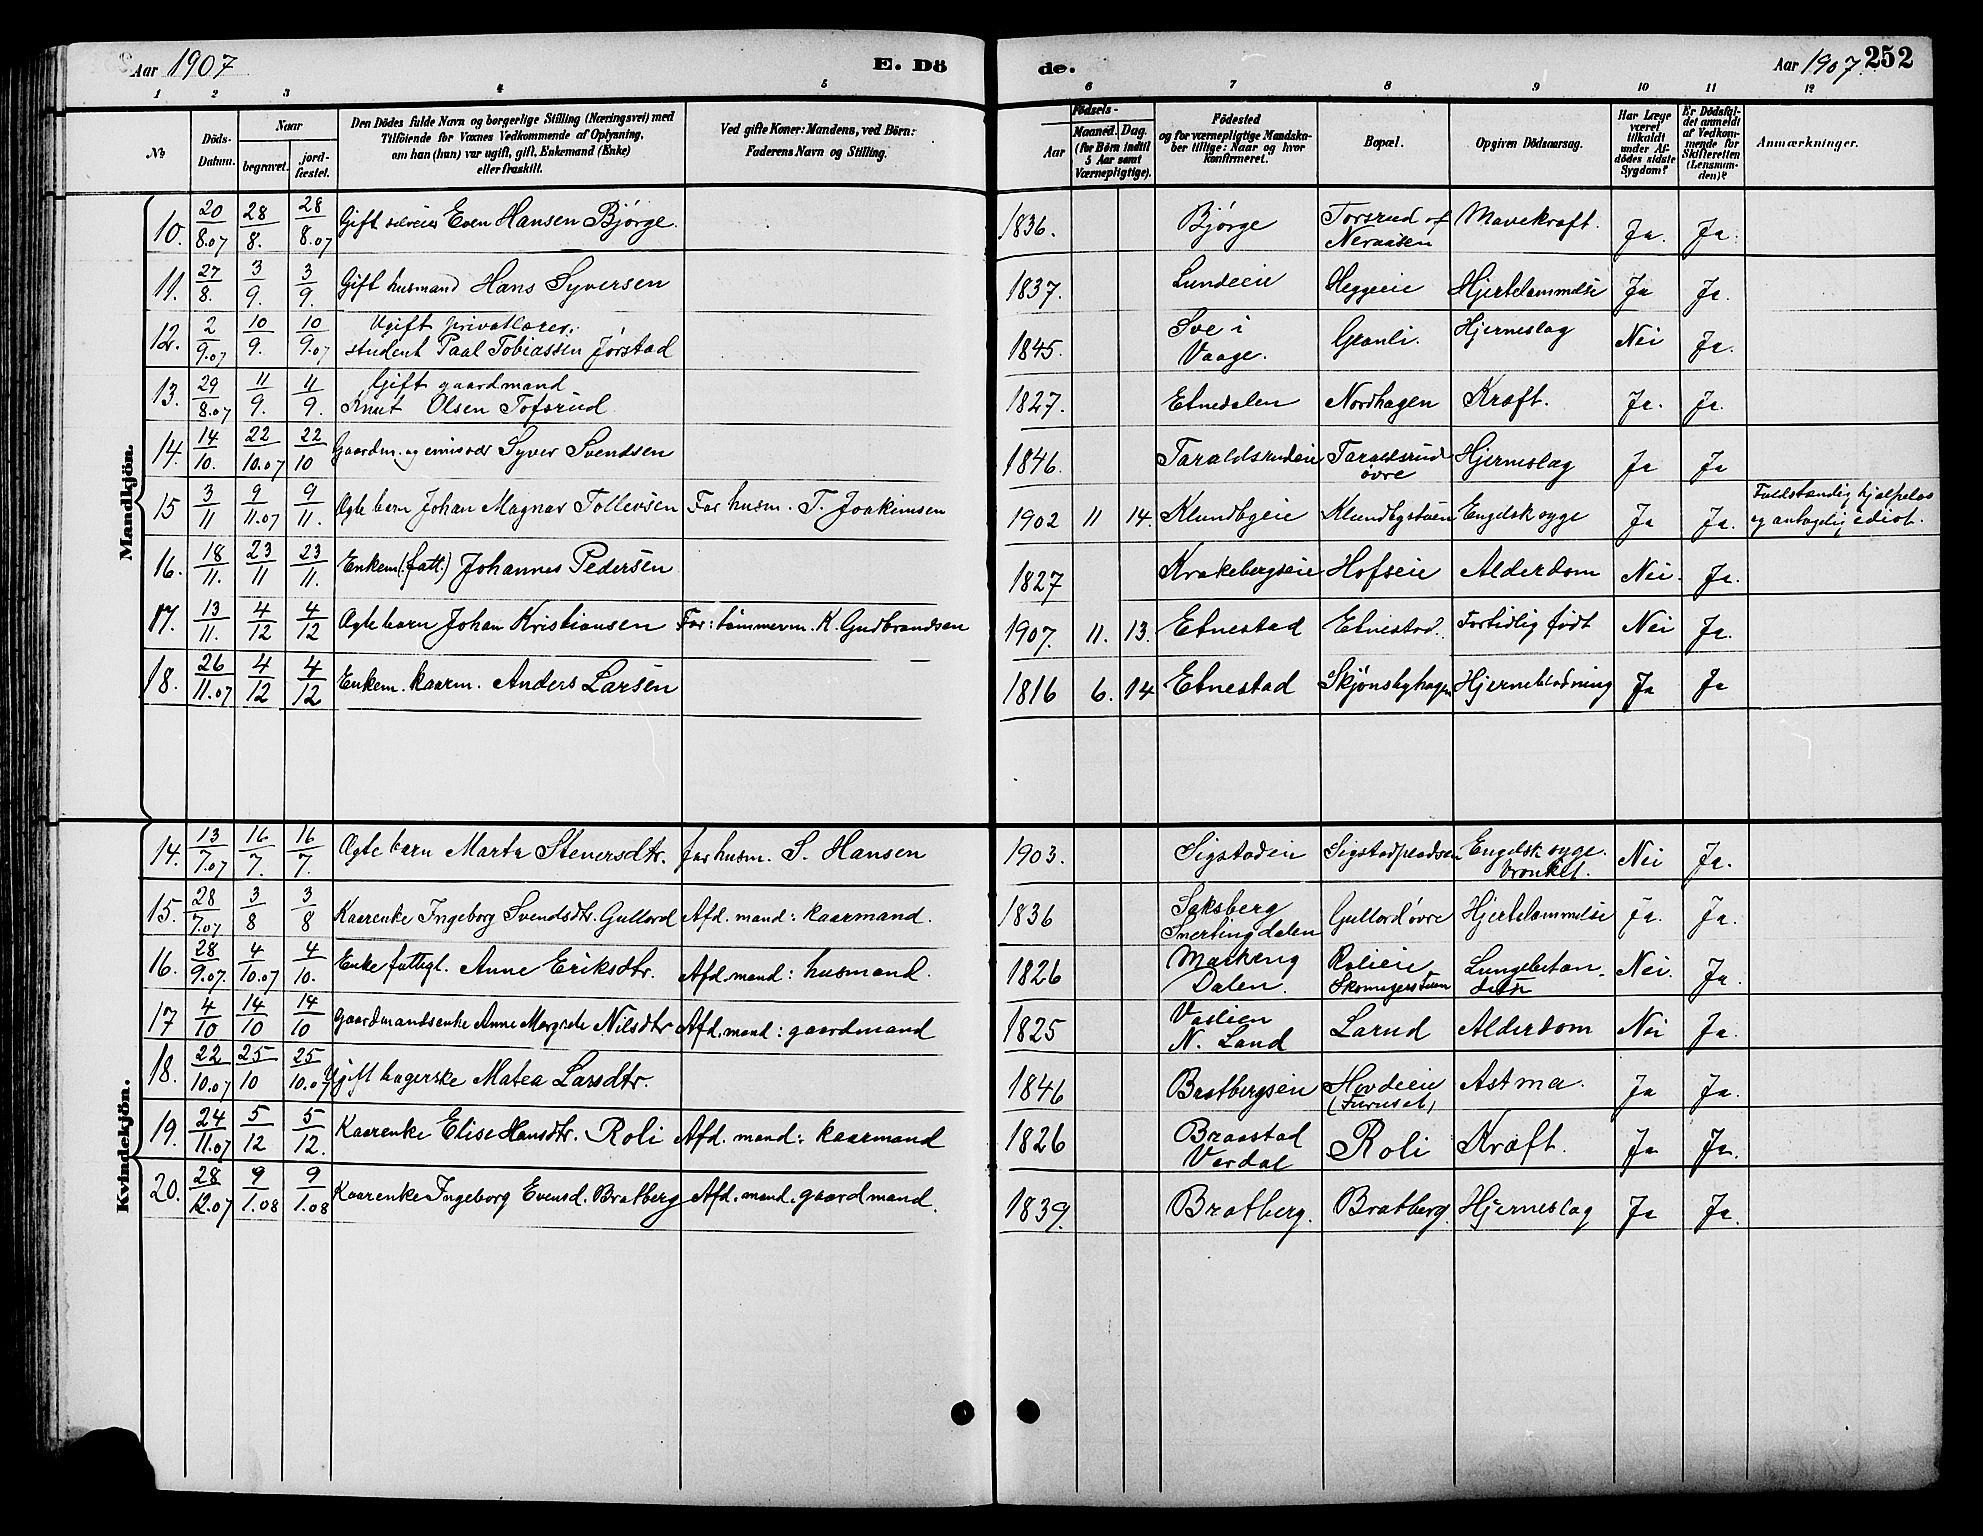 Aar 1907 E. Dö
de. Aar 1907. 252
1 2 3 4 5 6 7 8 9 10 11 12
No
Döds-Datum.
Naar
begravet.
jord-fæstet.
Den Dödes fulde Navn og borgerlige Stilling (Næringsvei) med
Tilföiende for Voxnes Vedkommende af Oplysning,
om han (hun) var ugift, gift, Enkemand (Enke)
eller fraskilt.
Ved gifte Koner: Mandens, ved Börn:
Faderens Navn og Stilling.
Födsels-
Aar
Maaned. Dag.
(for Börn indtil
5 Aar samt
Værnepligtige).
Födested
og for værnepligtige Mandska-
ber tillige: Naar og hvor
konfirmeret.
Bopæl.
Opgiven Dödsaarsag.
Har Læge
været
tilkaldt
under Af-
dödes sidste
Sygdom?
Er Dödsfal-
det anmeldt
af Vedkom-
mende for
Skifteretten
(Lensman-
den)?
Anmærkninger.
Mandkjön.
10. 20/8.07 28/8. 28/8.07 Gift selveier Even Hansen Bjørge. 1836. Bjørge Torsrud af Neraasen Mavekræft. Ja. Ja.
11. 27/8. 3/9. 3/9. Gift husmand Hans Syversen 1837. Lundeeie Heggeeie Hjertelammelse Ja Ja.
12. 2/9.07 10/9. 10/9.07 Ugift privatlærer,
student Paal Tobiassen Jørstad 1845. Sve i Vaage. Granli. Hjerneslag Nei Ja.
13. 29/8.07 11/9. 11/9. Gift gaardmand
Knut Olsen Tofsrud. 1827. Etnedalen Nordhagen Kræft. Ja. Ja.
14. 14/10. 22/10.07 22/10 Gaardm. og emissær Syver Svendsen 1846. Taraldsrudeie Taraldsrud øvre Hjerneslag Ja Ja
15 3/11 9/11.07 9/11. Ægte barn Johan Magnar Tollevsen Far husm. T. Joakimsen 1902 11 14. Klundbyeie Klundbystuen Engelsk syge Ja Ja. Fuldstændig hjælpeløs
og antagelig idiot.
16. 18/11. 23/11 23/11. Enkem (fatt.) Johannes Pedersen 1827 Krakebergseie Hofseie Alderdom Nei. Ja.
17. 13/11. 4/12 4/12 Ægte barn Johan Kristiansen Far: tømmerm. K. Gudbrandsen 1907. 11. 13. Etnestad Etnestad. Fortidlig født Nei Ja.
18. 26/11.07 4/12 4/12 Enkem. kaarm. Anders Larsen 1816 6. 14 Etnestad Skjønsbyhagen Hjerneblødning Ja Ja
Kvindekjön.
14. 13/7.07 16/7. 16/7. Ægte barn Marta Steversdtr. far husm. S. Hansen 1903. Sigstadeie Sigstadpladsen Engelsk syge. Bronkit. Nei Ja.
15. 28/7.07 3/8 3/8 Kaarenke Ingeborg Svendsdtr. Gullord Afd. mand: kaarmand. 1836 Seksberg Snertingdalen Gullord øvre Hjertelammelse Ja. Ja.
16. 28/9.07. 4/10.07 4/10. Enke fattigl. Anne Eriksdtr. Afd. mand: husmand. 1826 Dalen. Rolieie Lungebetændelse Nei. Ja.
17 4/10 14/10 14/10 Gaardmandsenke Anne Margrete Nilsdtr Afd. mand: gaardmand 1825 N. Land Larud Alderdom Nei Ja.
18. 22/10.07 25/10 25/10.07 Ugift bagerske Matea Larsdtr. 1846 Bratbergseie Hovdeeie (Furuset) Astma. Ja Ja.
19. 24/11.07 5/12 5/12. Kaarenke Elise Hansdtr. Roli Afd. mand: kaarmand 1826 Braastad Vardal Roli Kræft. Ja Ja.
20. 28/12.07 9/1.08 9/1.08 Kaarenke Ingeborg Evensd. Bratberg Afd. mand. gaardmand. 1839. Bratberg. Bratberg. Hjerneslag Ja Ja.